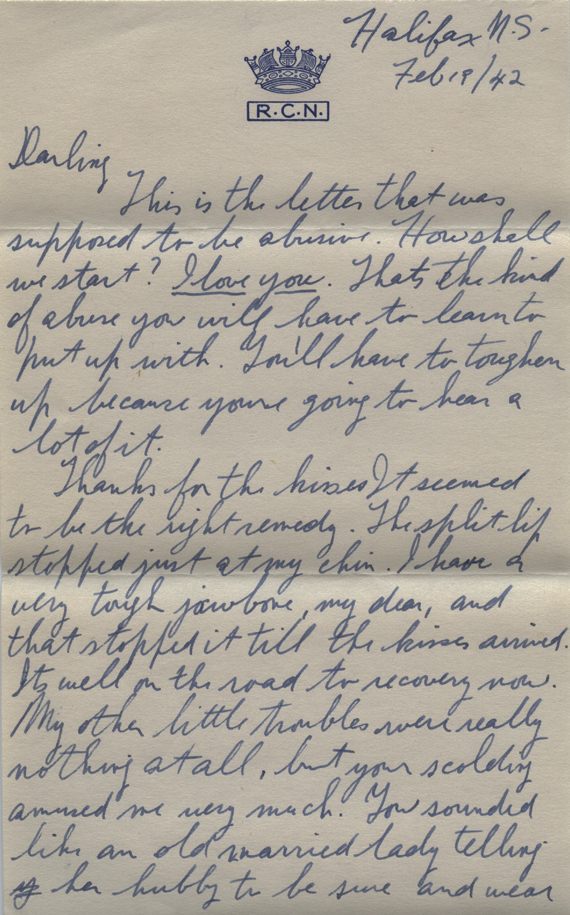 Halifax N.S.
Feb 18/42
R.C.N.
Darling
This is the letter that was
supposed to be abusive. How shall
we start? I love you. Thats the kind
of abuse you will have to learn to
put up with. You'll have to toughen
up because youre going to hear a
lot of it.
Thanks for the kisses It seemed
to be the right remedy. The split lip
stopped just at my chin. I have a
very tough jawbone, my dear, and
that stopped it till the kisses arrived.
Its well on the road to recovery now.
My other little troubles were really
nothing at all, but your scolding
amused me very much. You sounded
like an old married lady telling
her hubby to be sure and wear